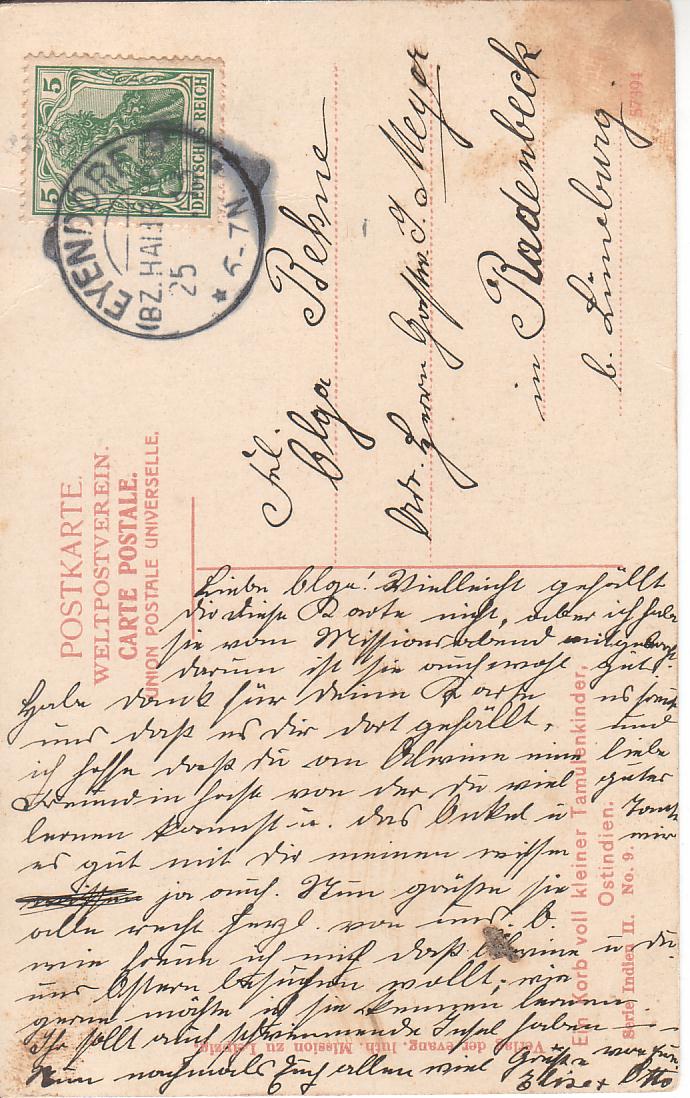 POSTKARTE.
WELTPOSTVEREIN.
CARTE POSTALE.
UNION POSTALE UNIVERSELLE.
5 5
DEUTSCHES REICH
EYENDORF
(BZ. HAMB
25
6-7N
57394
Frl.
Olga Behne
Adr. Herrn Gastw. J. Meyer
in Radenbeck
b. Lüneburg.
Liebe Olga! Vielleicht gefällt
dir diese Karte nicht, aber ich habe
sie vom Missionsabend mitgebracht
darum ist sie auch wohl gut.
Habe dank für deine Karte es freut
uns daß es dir dort gefällt, und
ich hoffe daß du an Alwine eine liebe
Freundin hast von der du viel gutes
lernen kannst u. das Onkel u Tante
es gut mit dir meinen wissen wir
ja auch. Nun grüße sie
alle recht herzl. von uns. O.
wie freue ich mich daß Alwine u du
uns Ostern besuchen wollt, wie
gerne möchte ich sie kennen lernen
Ihr sollt auch schwimmende Insel haben
Nun nochmals Euch allen viel Grüße von
Elise u Otto
Ein Korb voll kleiner Tamulenkinder,
Ostindien.
Serie: Indien II. No. 9.
Verlag der evang. luth. Mission zu Leipzig.